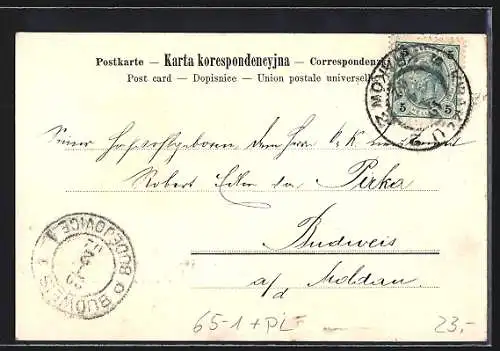 Postkarte — Karta korespondencyjna — Correspondenz
Post card — Dopisnice — Union postale universelle
5 5
Seiner Hochwohlgeboren dem Herrn k. k.
Robert Edlen von Pirka
Budweis
a/d Moldau
BUDWEIS BUDĚJOVICE
65-1 + PL
23,-